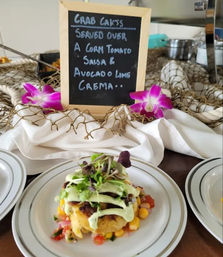 CRAB CAKES
SERVED OVER
A CORN TOMATO
SALSA &
AVOCADO LIME
CREMA..